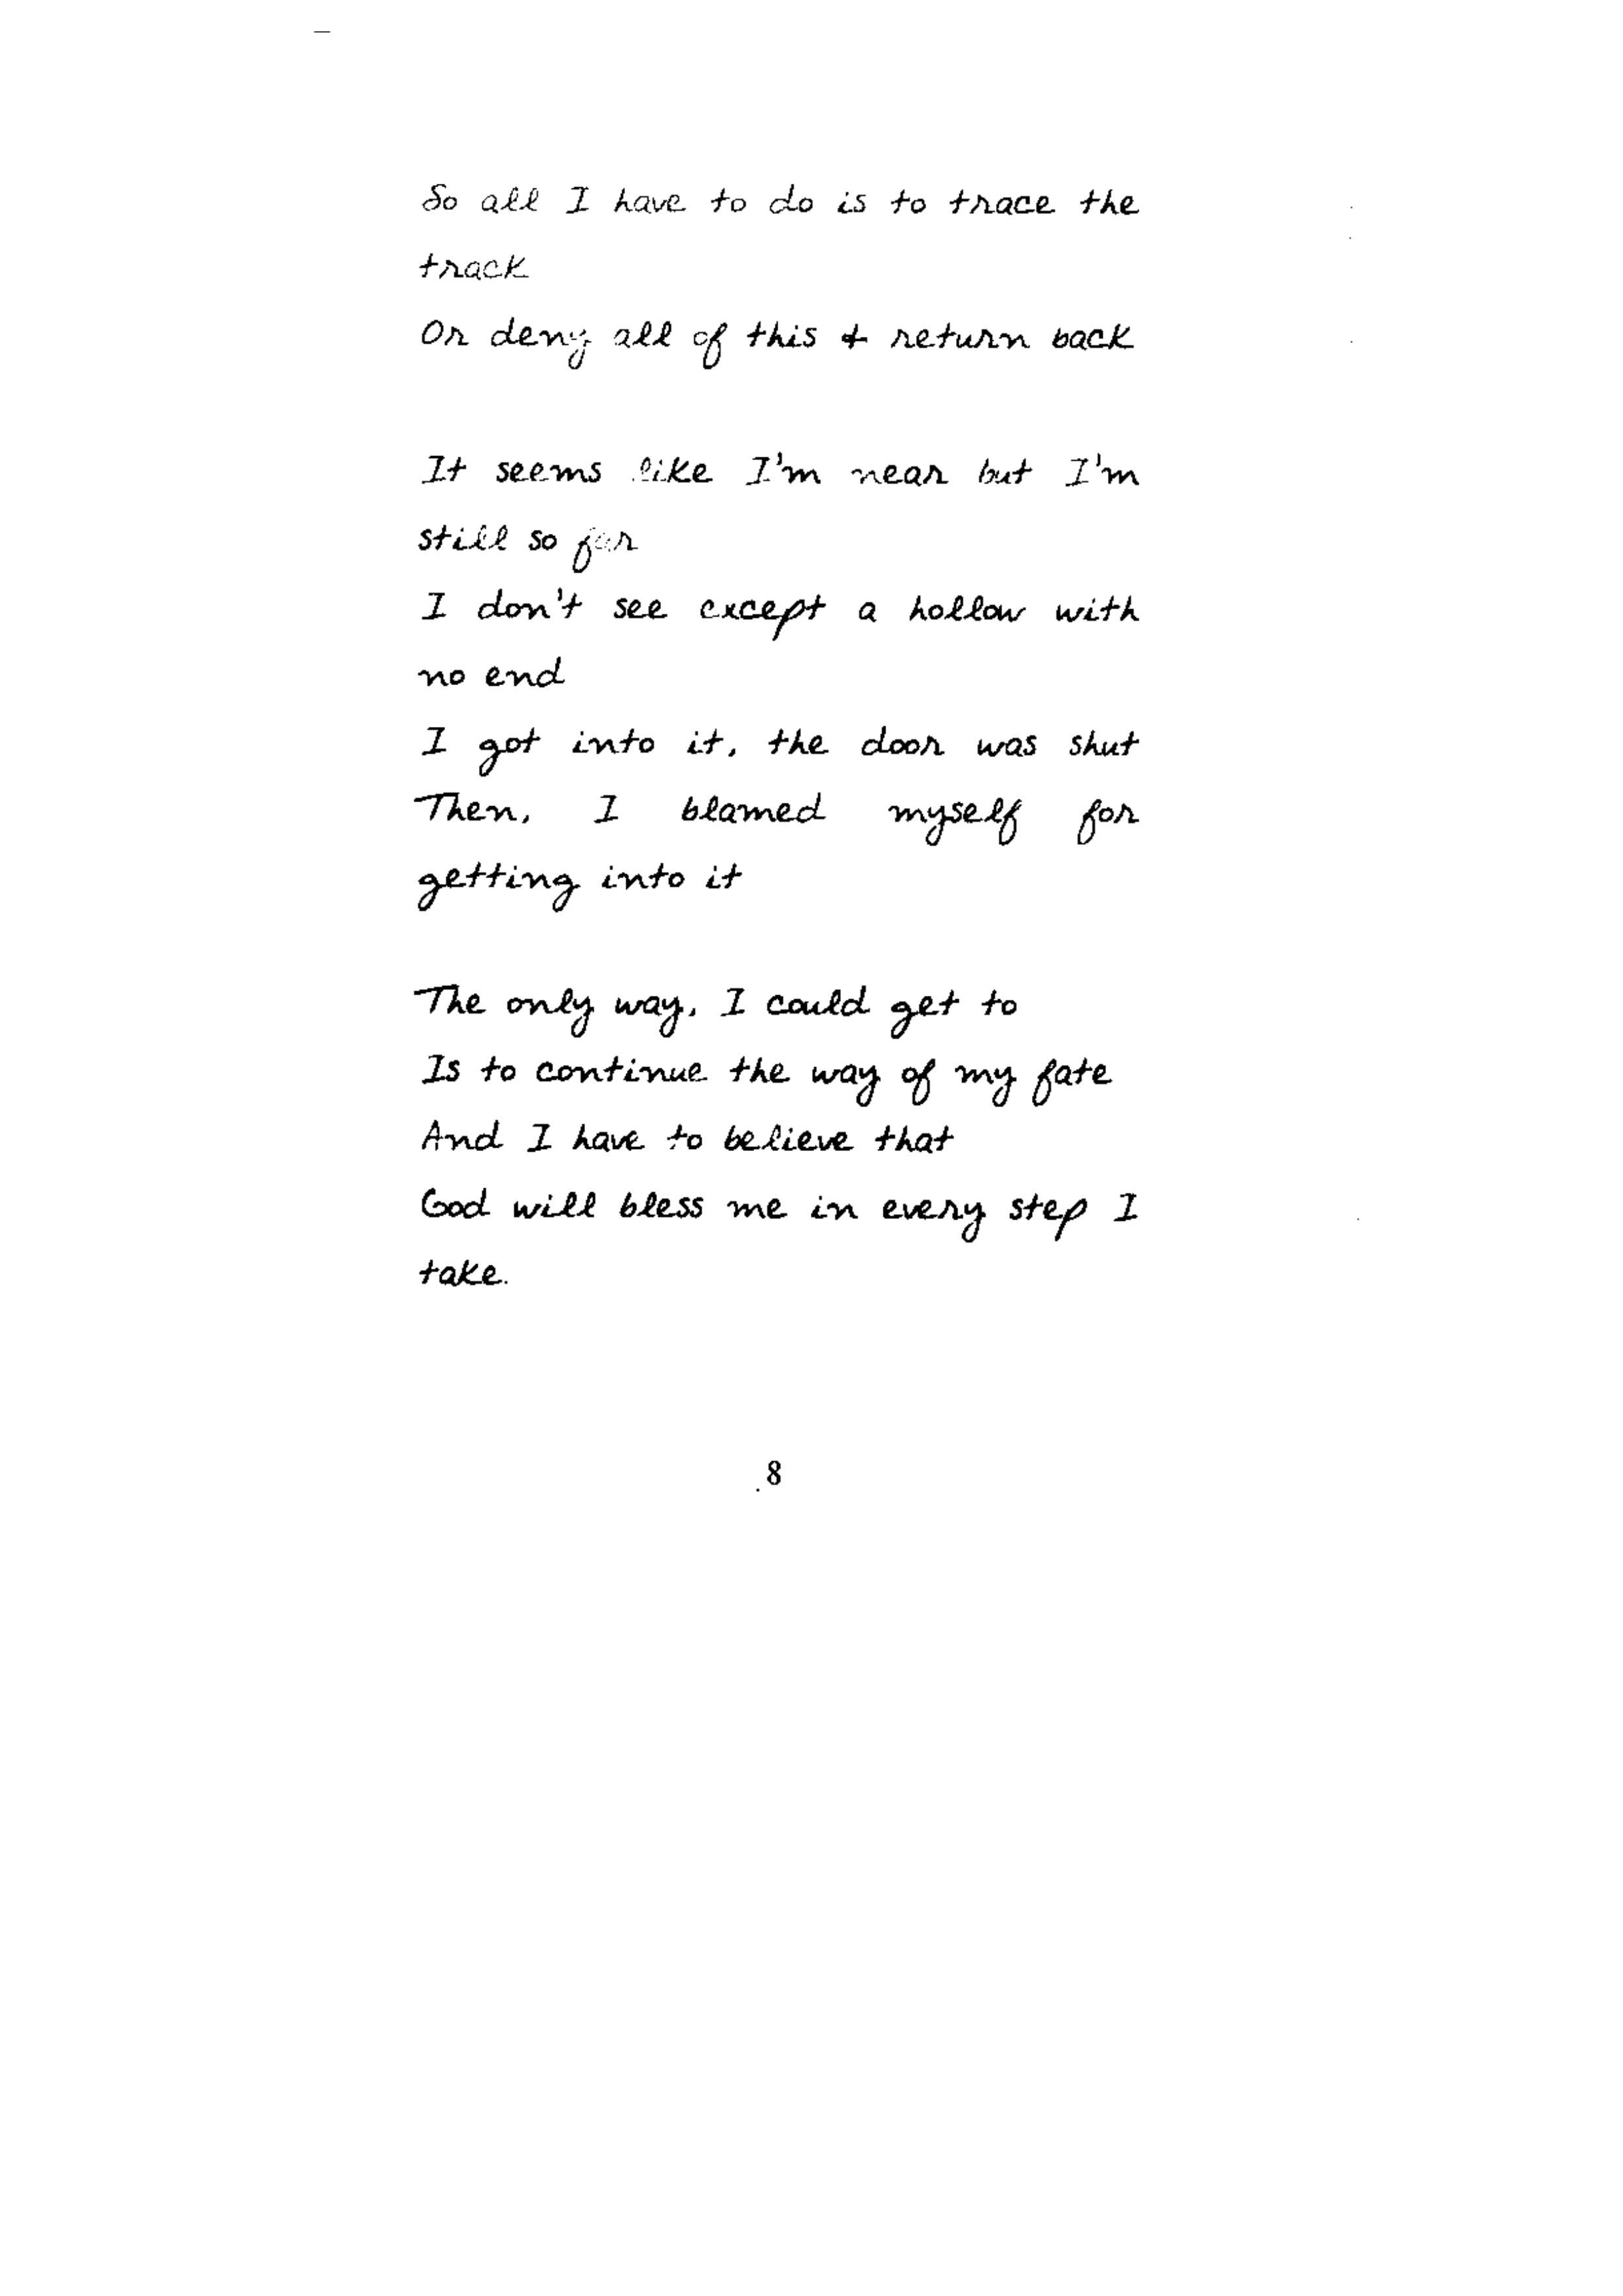 So all I have to do is to trace the
track
Or deny all of this & return back
It seems like I'm near but I'm
still so far
I don't see except a hollow with
no end
I got into it, the door was shut
Then, I blamed myself for
getting into it
The only way, I could get to
Is to continue the way of my fate
And I have to believe that
God will bless me in every step I
take.
8